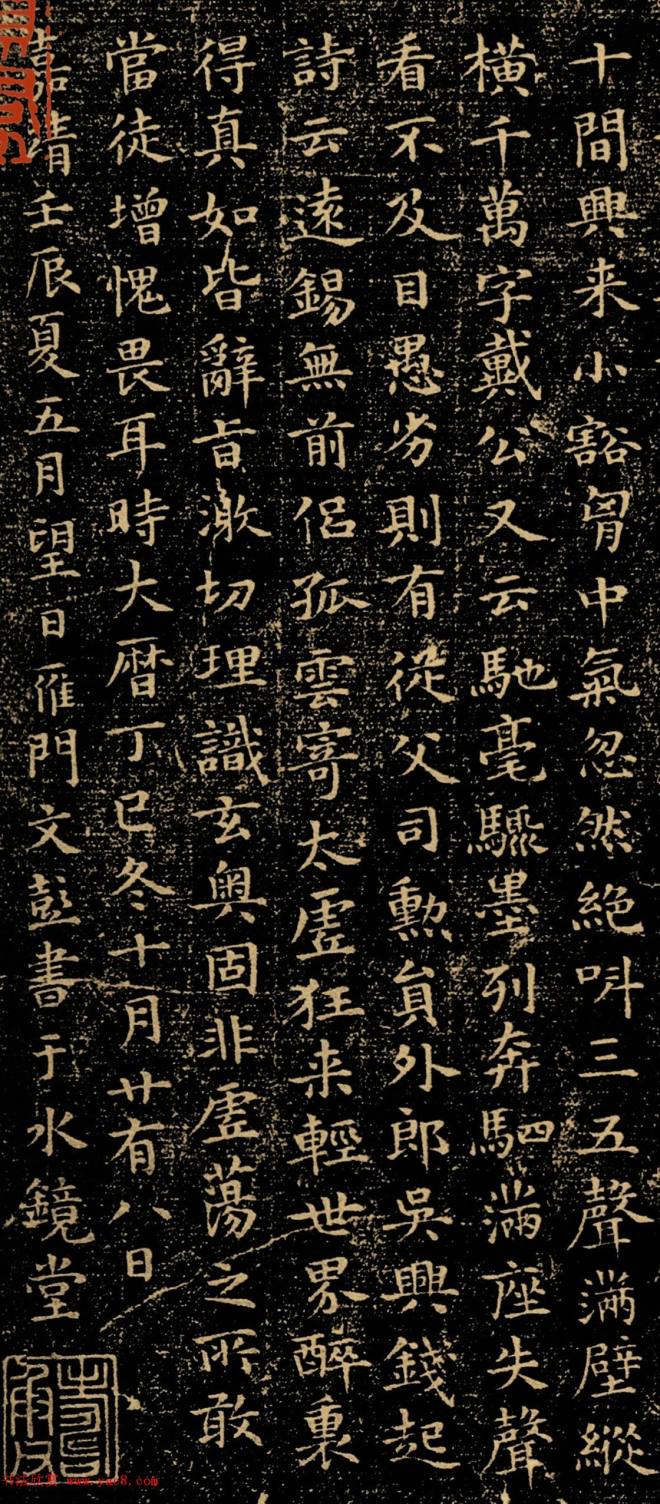 十間興来小豁胷中氣忽然絶呌三五聲滿壁縱
橫千萬字戴公又云馳毫驟墨列奔駟滿座失聲
看不及目愚劣則有從父司勲貟外郎吳興錢起
詩云遠錫無前侶孤雲寄太虛狂来輕世界醉裏
得真如皆辭旨激切理識玄奧固非虛蕩之所敢
當徒增愧畏耳時大曆丁巳冬十月廿有八日
嘉靖壬辰夏五月望日雁門文彭書于水鏡堂
书法欣赏 www.yac8.com